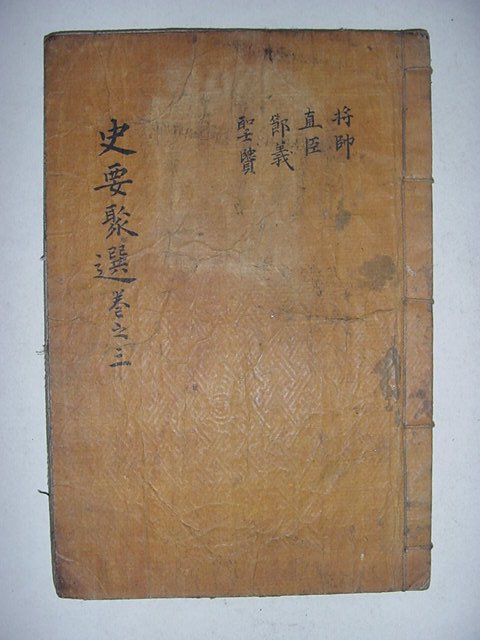 将帥
直臣
節義
聖賢
史要聚選 卷之三